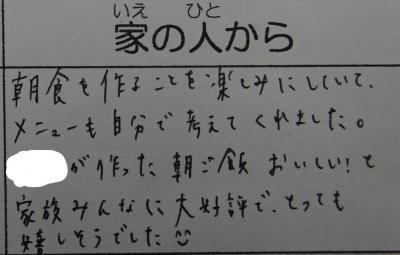 いえ ひと
家の人から
朝食を作ることを楽しみにしていて、
メニューも自分で考えてくれました。
が作った朝ご飯おいしい!と
家族みんなに大好評で、とっても
嬉しそうでした☺